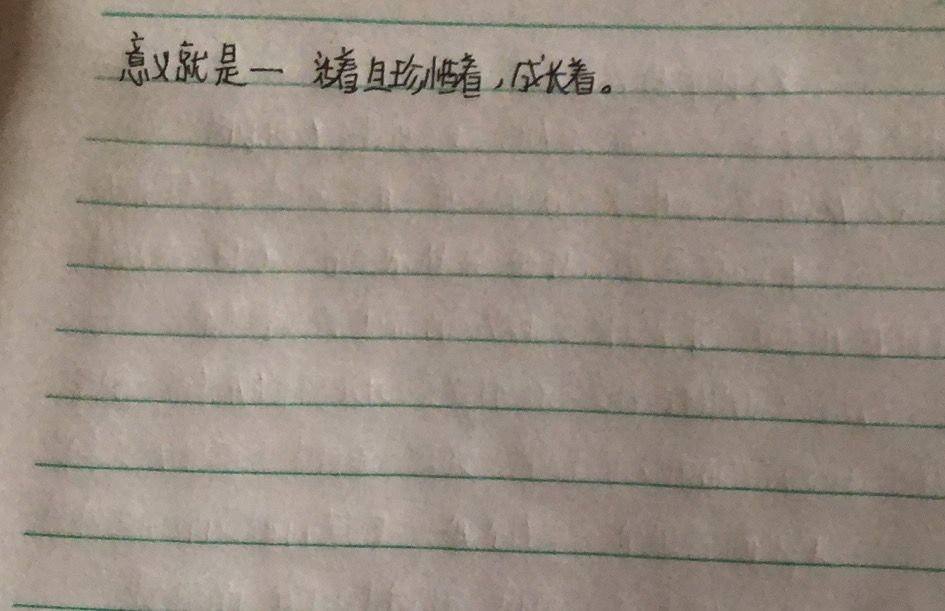 意义就是一 活着且珍惜着,成长着。